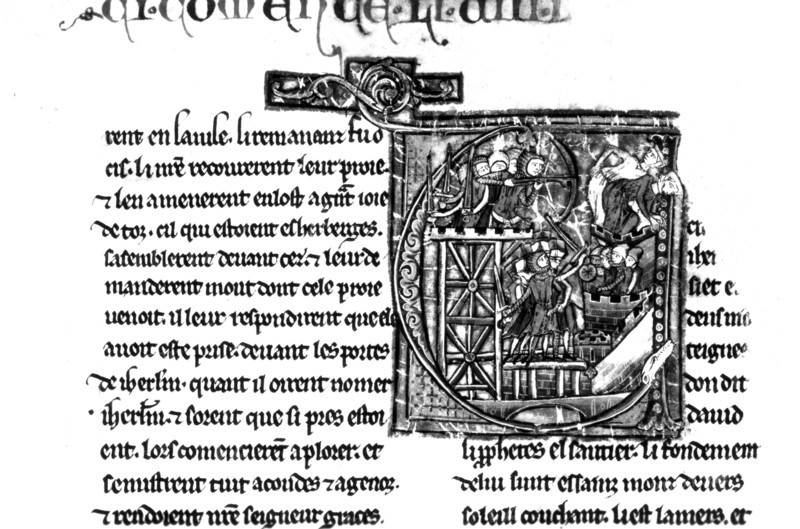 ci comence li
rent en la uile. li remananz fu o
cis. li nr̃e recouurerent leur proie
⁊ len amenerent en lost a gnt̃ ioie
de toz. cil qui estoient es herberges.
sasemblerent deuant cez. ⁊ leur de
manderent mout dont cele proie
uenoit. il leur respondirent que ele
auoit este prise. deuant les portes
de ihr̃lm. quant il oirent nomer
ihr̃lm. ⁊ sorent que si pres estoi
ent. lors comencierẽt a plorer. et
se mistrent tuit a coudes ⁊ a genoz.
⁊ rendoient nr̃e seigneur graces.
siet e
teigne
don dit
dauid
li ꝓphetes el sautier. li fondement
de liu sunt es sainz monz deuers
soleill couchant. li est la mers. et